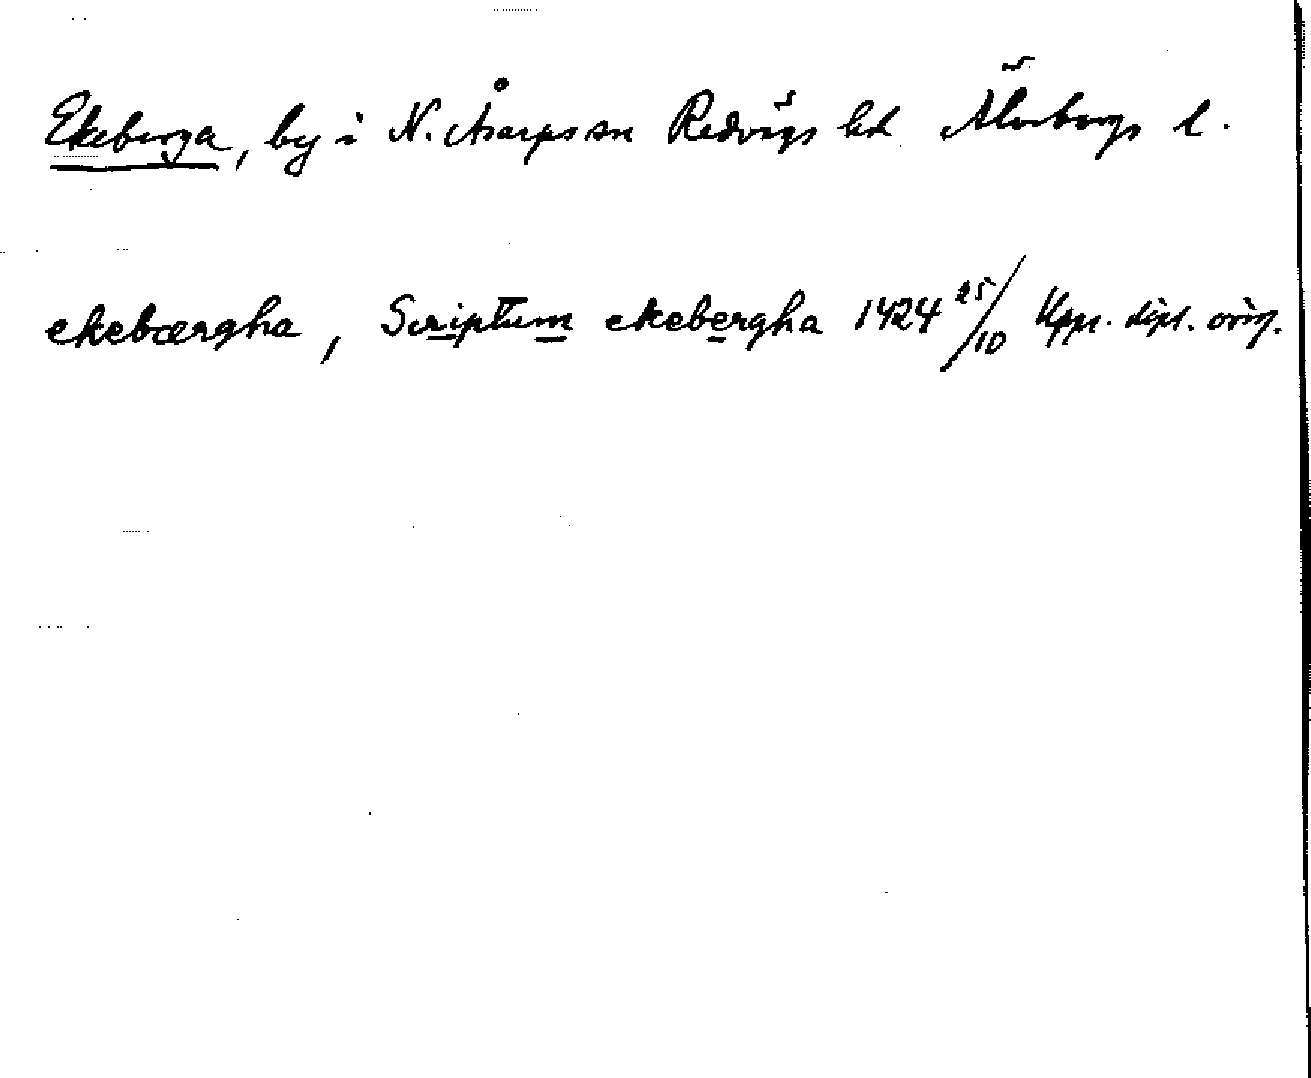 Ekeberga, by i N. Åsarps sn Redvägs hd Älvsborgs l.
ekebærgha, Scriptum ekebergha 1424 25/10 Upps. dipl. orig.